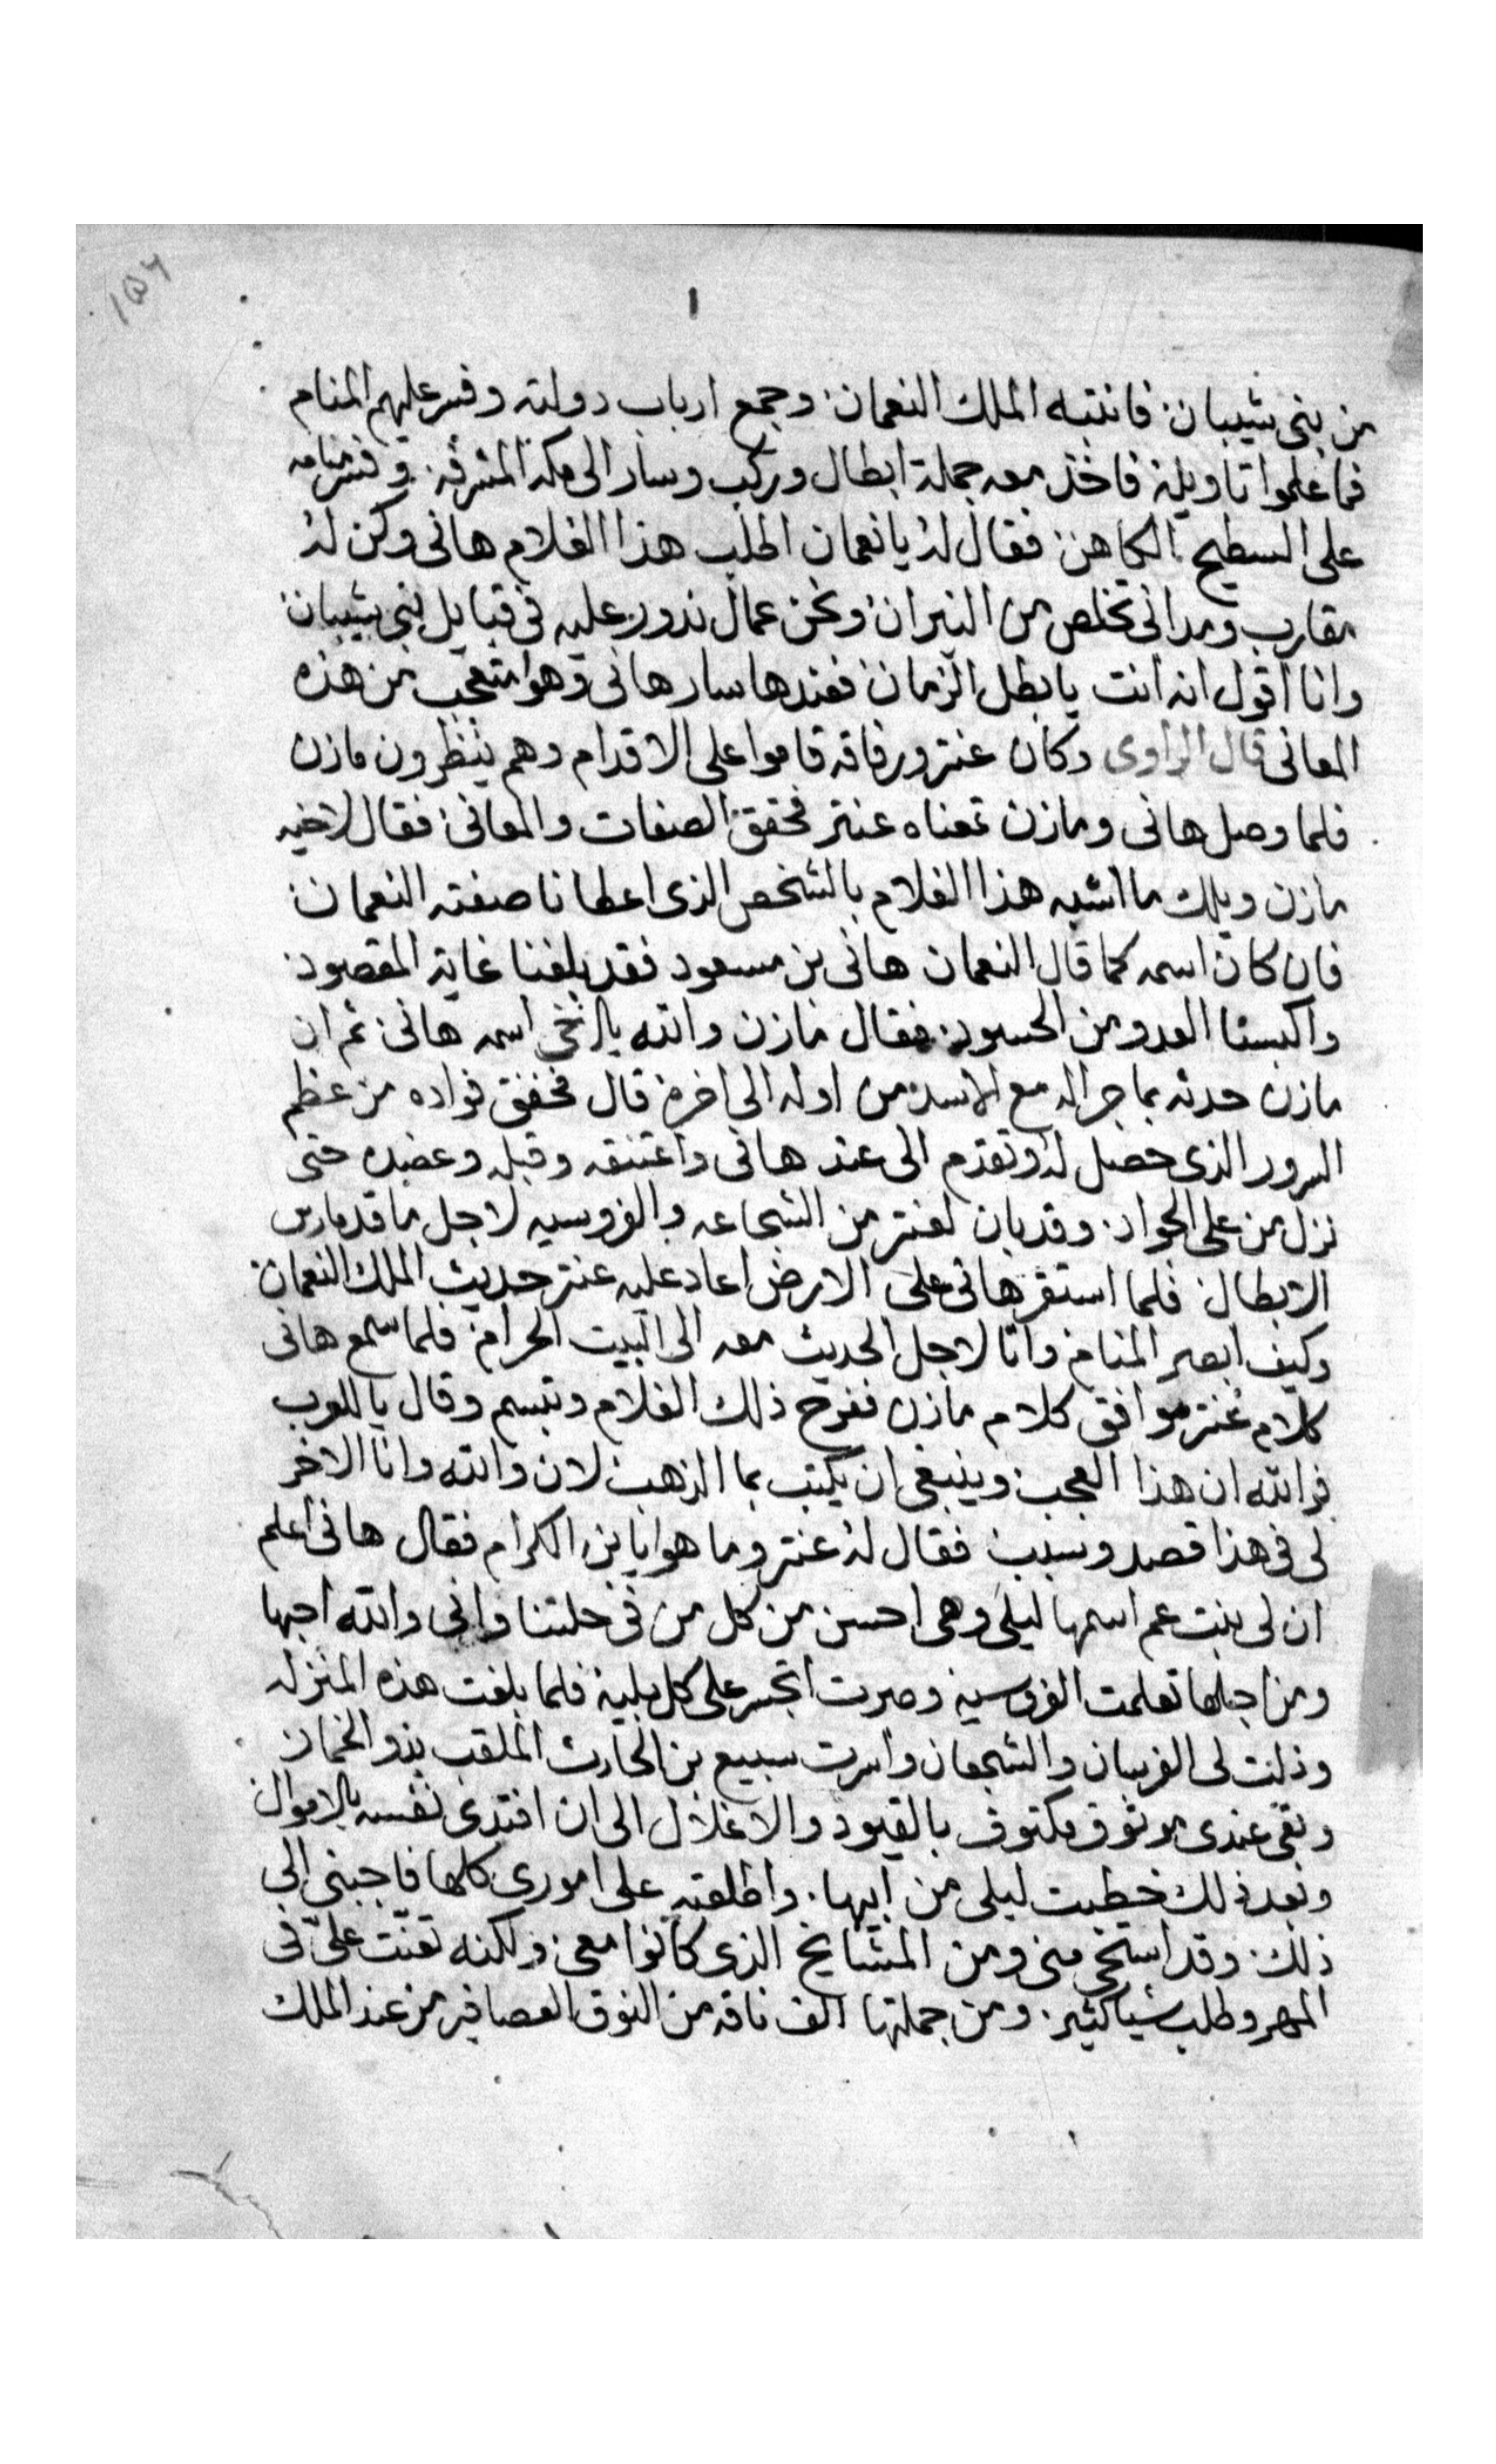 ١
من بنى شيبان فانتبه الملك النعمان وجمع ارباب دولته وفسر عليهم المنام
فما علموا تاويله فاخذ معه جملة ابطال وركب وسار الى مكه المشرفه وفسر منامه
على السطيح الكاهن فقال له يا نعمان اطلب هذا الغلام هانى وكن له
مقارب ومدانى تخلص من النيران ونحن عمال ندور عليه فى قبايل بنى شيبان
وانا اقول انه انت يا بطل الزمان فعندها سار هانى وهوا متعجب من هذه
المعانى قال الراوى وكان عنتر ورفاقه قاموا على الاقدام وهم ينظرون مازن
فلما وصل هانى ومازن تمعناه عنتر فحقق الصفات والمعانى فقال لاخيه
مازن ويلك ما اشبه هذا الغلام بالشخص الذى اعطانا صفته النعمان
فان كان اسمه كما قال النعمان هانى بن مسعود فقد بلغنا غاية المقصود
واكبسنا العدو من الحسود فقال مازن والله يا اخى اسمه هانى ثم ان
مازن حدثه بما جرا له مع الاسد من اوله الى اخره قال فخفق فواده من عظم
السرور الذى حصل له وتقدم الى عند هانى واعتنقه وقبله وعضده حتى
نزل من على الجواد وقد بان لعنتر من الشجاعه والفروسيه لاجل ما قد مارس
الابطال فلما استقر هانى على الارض اعاد عليه عنتر حديث الملك النعمان
وكيف ابصر المنام واتا لاجل الحديث معه الى البيت الحرام فلما سمع هانى
كلام عنتر موافق كلام مازن ففرح ذلك الغلام وتبسم وقال يا للعرب
فوالله ان هذا العجب وينبغى ان يكتب بما الذهب لان والله وانا الاخر
لى فى هذا قصد وسبب فقال له عنتر وما هوا يا بن الكرام فقال هانى اعلم
ان لى بنت عم اسمها ليلى وهى احسن من كل من فى حلتنا وانى والله احبها
ومن اجلها تعلمت الفروسيه وصرت اتجسر على كل بلية فلما بلغت هذه المنزله
وذلت لى الفرسان والشجعان واسرت سبيع بن الحارث الملقب بذو الخمار
وبقى عندى موثوق مكتوف بالقيود والاغلال الى ان افتدى نفسه بالاموال
وبعد ذلك خطبت ليلى من ابيها واطلعته على امورى كلها فاجبنى الى
ذلك وقد استحى منى ومن المشايخ الذى كانوا معى ولكنه تعنت علىّ فى
المهر وطلب شيا كثير ومن جملتها الف ناقه من النوق العصافير من عند الملك